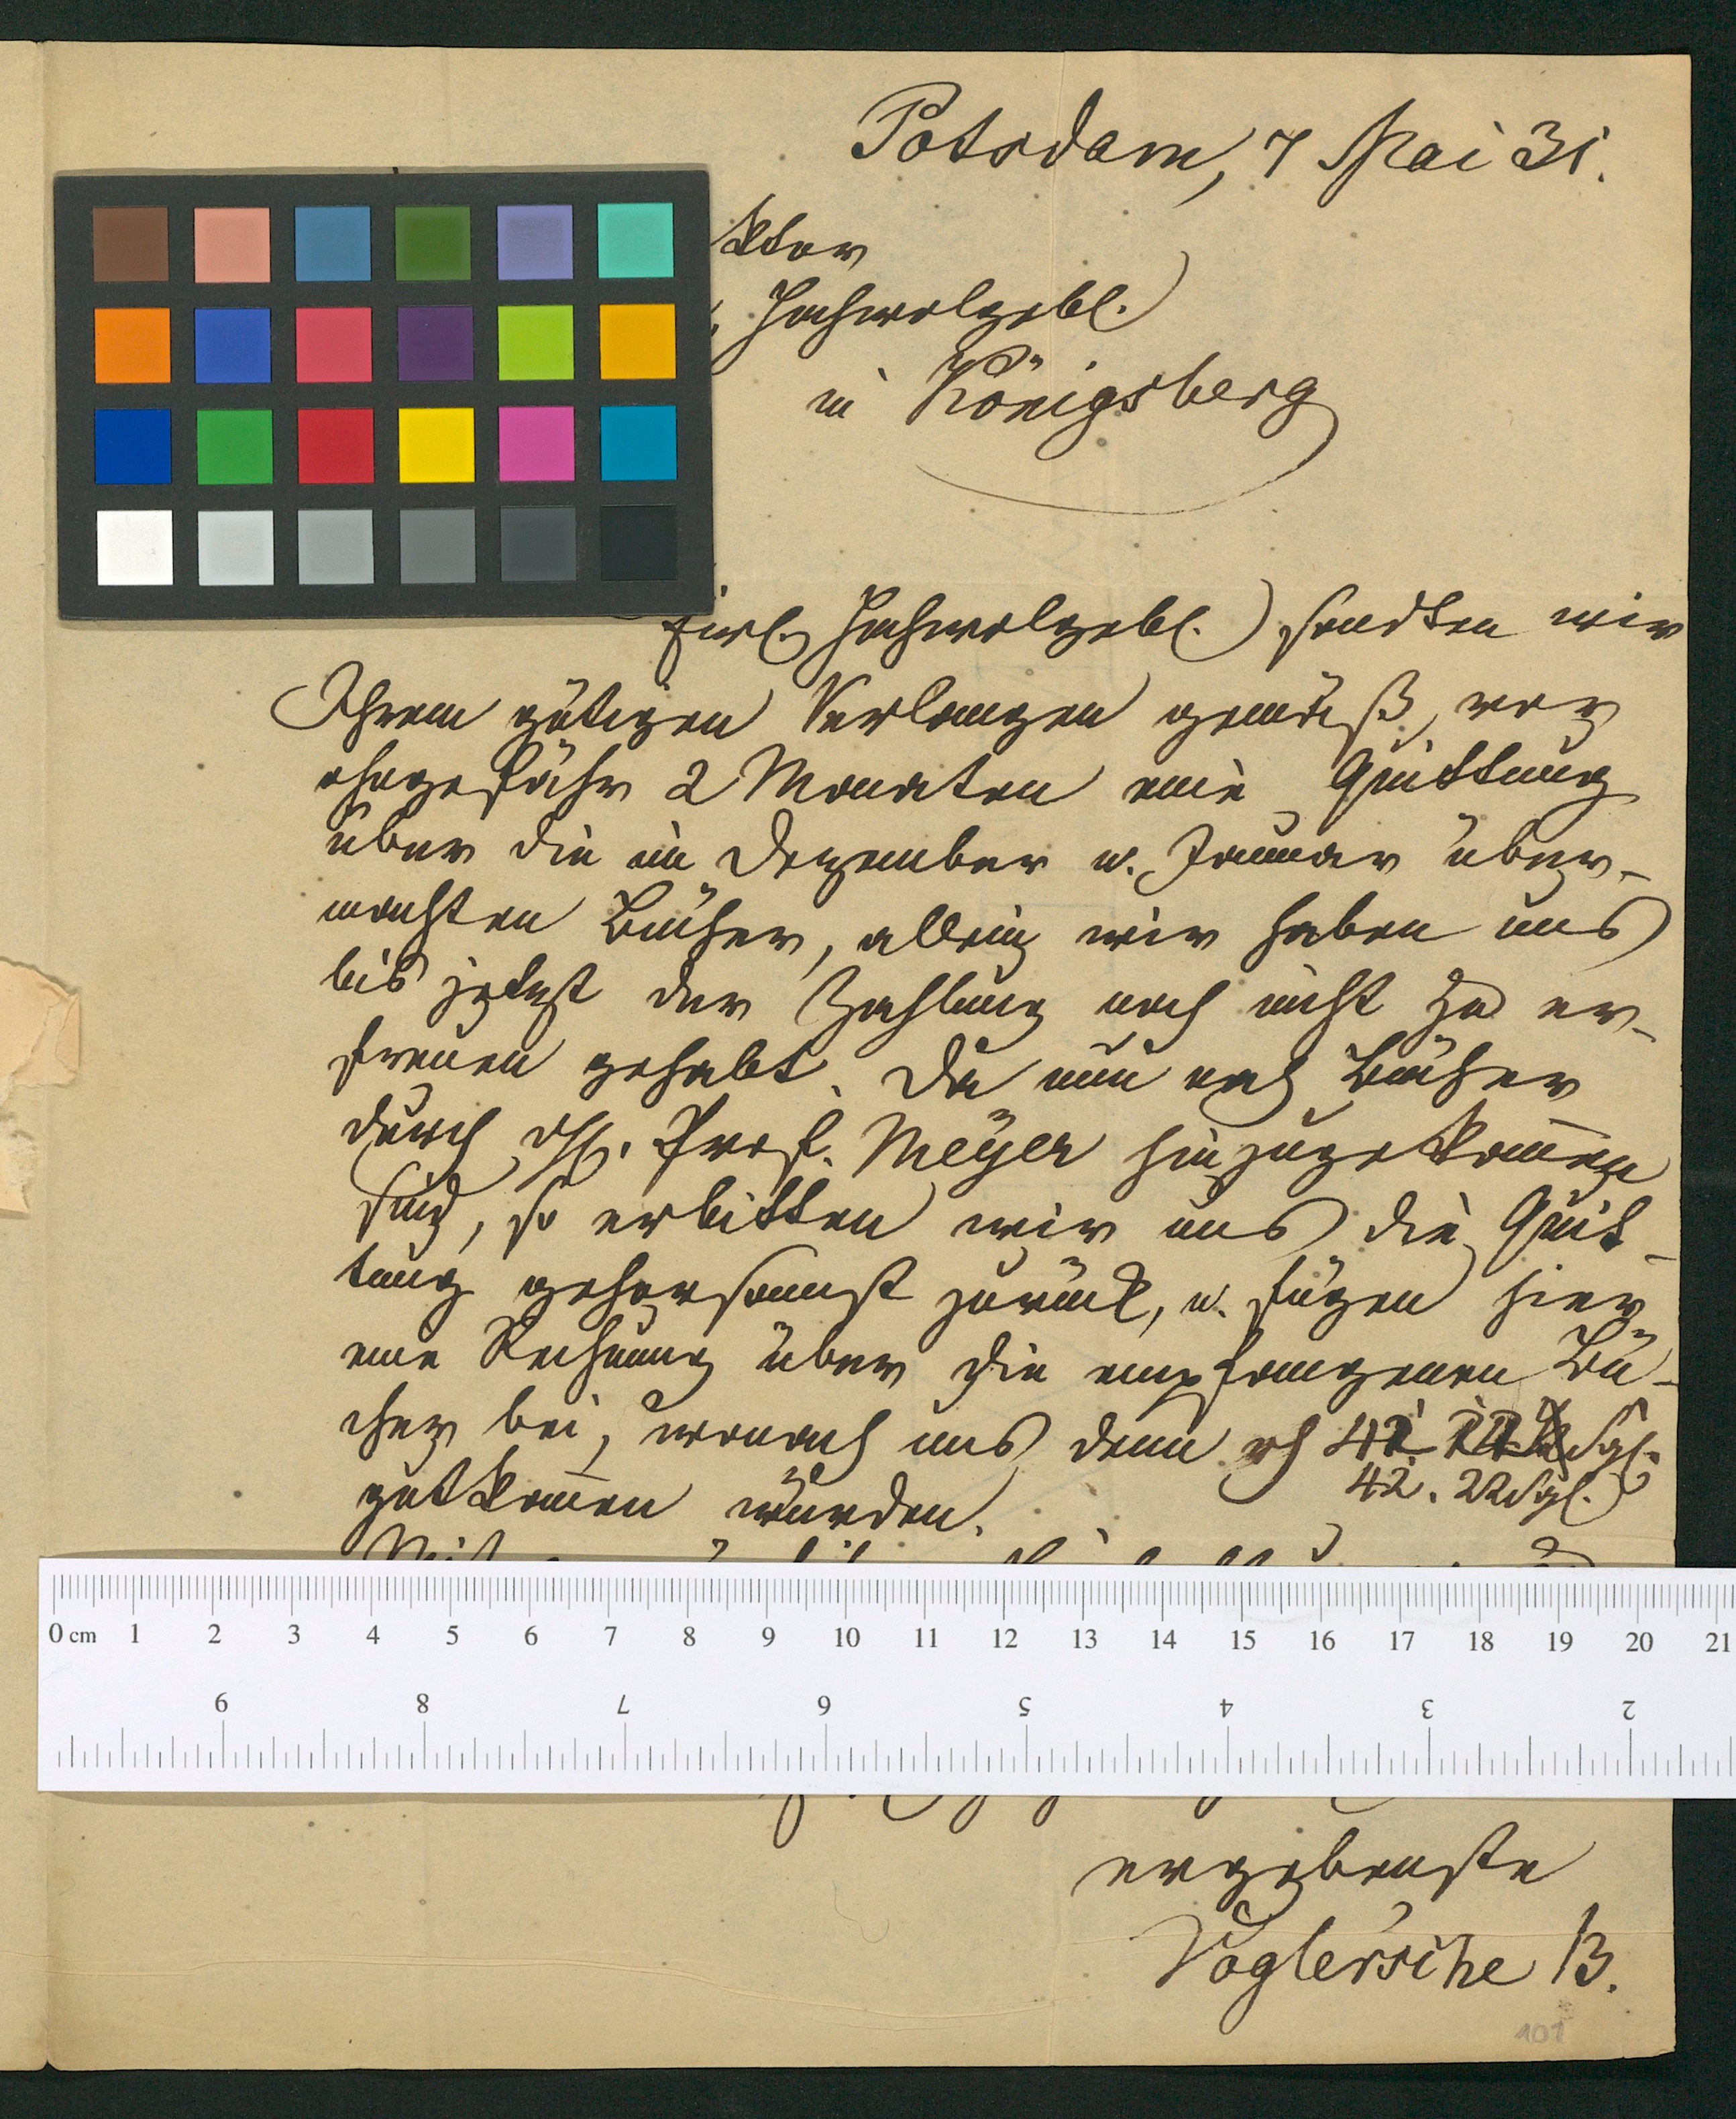 Potsdam, 7 Mai 31.
ktor
Hochwolgebl.
in Königsberg
Ewl. Hochwolgebl. sandten wir
Ihrem gütigen Verlangen gemäß, vor
ohngefähr 2 Monaten eine Quittung
über die im Dezember u. Januar über-
machten Bücher, allein wir haben uns
bis jetzt der Zahlung noch nicht zu er-
freuen gehabt. Da nun noch Bücher
durch Prof. Meyer hinzugekommen
sind, so erbitten wir uns die Quit-
tung gehorsamst zurück, u. fügen hier
eine Rechnung über die empfangenen Bü-
cher bei, wonach uns denn 42. 22 Sgl.
gutkommen würden.
ergebenste
Vogler'sche B.
101
0 cm 1 2 3 4 5 6 7 8 9 10 11 12 13 14 15 16 17 18 19 20 21
9 8 7 6 5 4 3 2